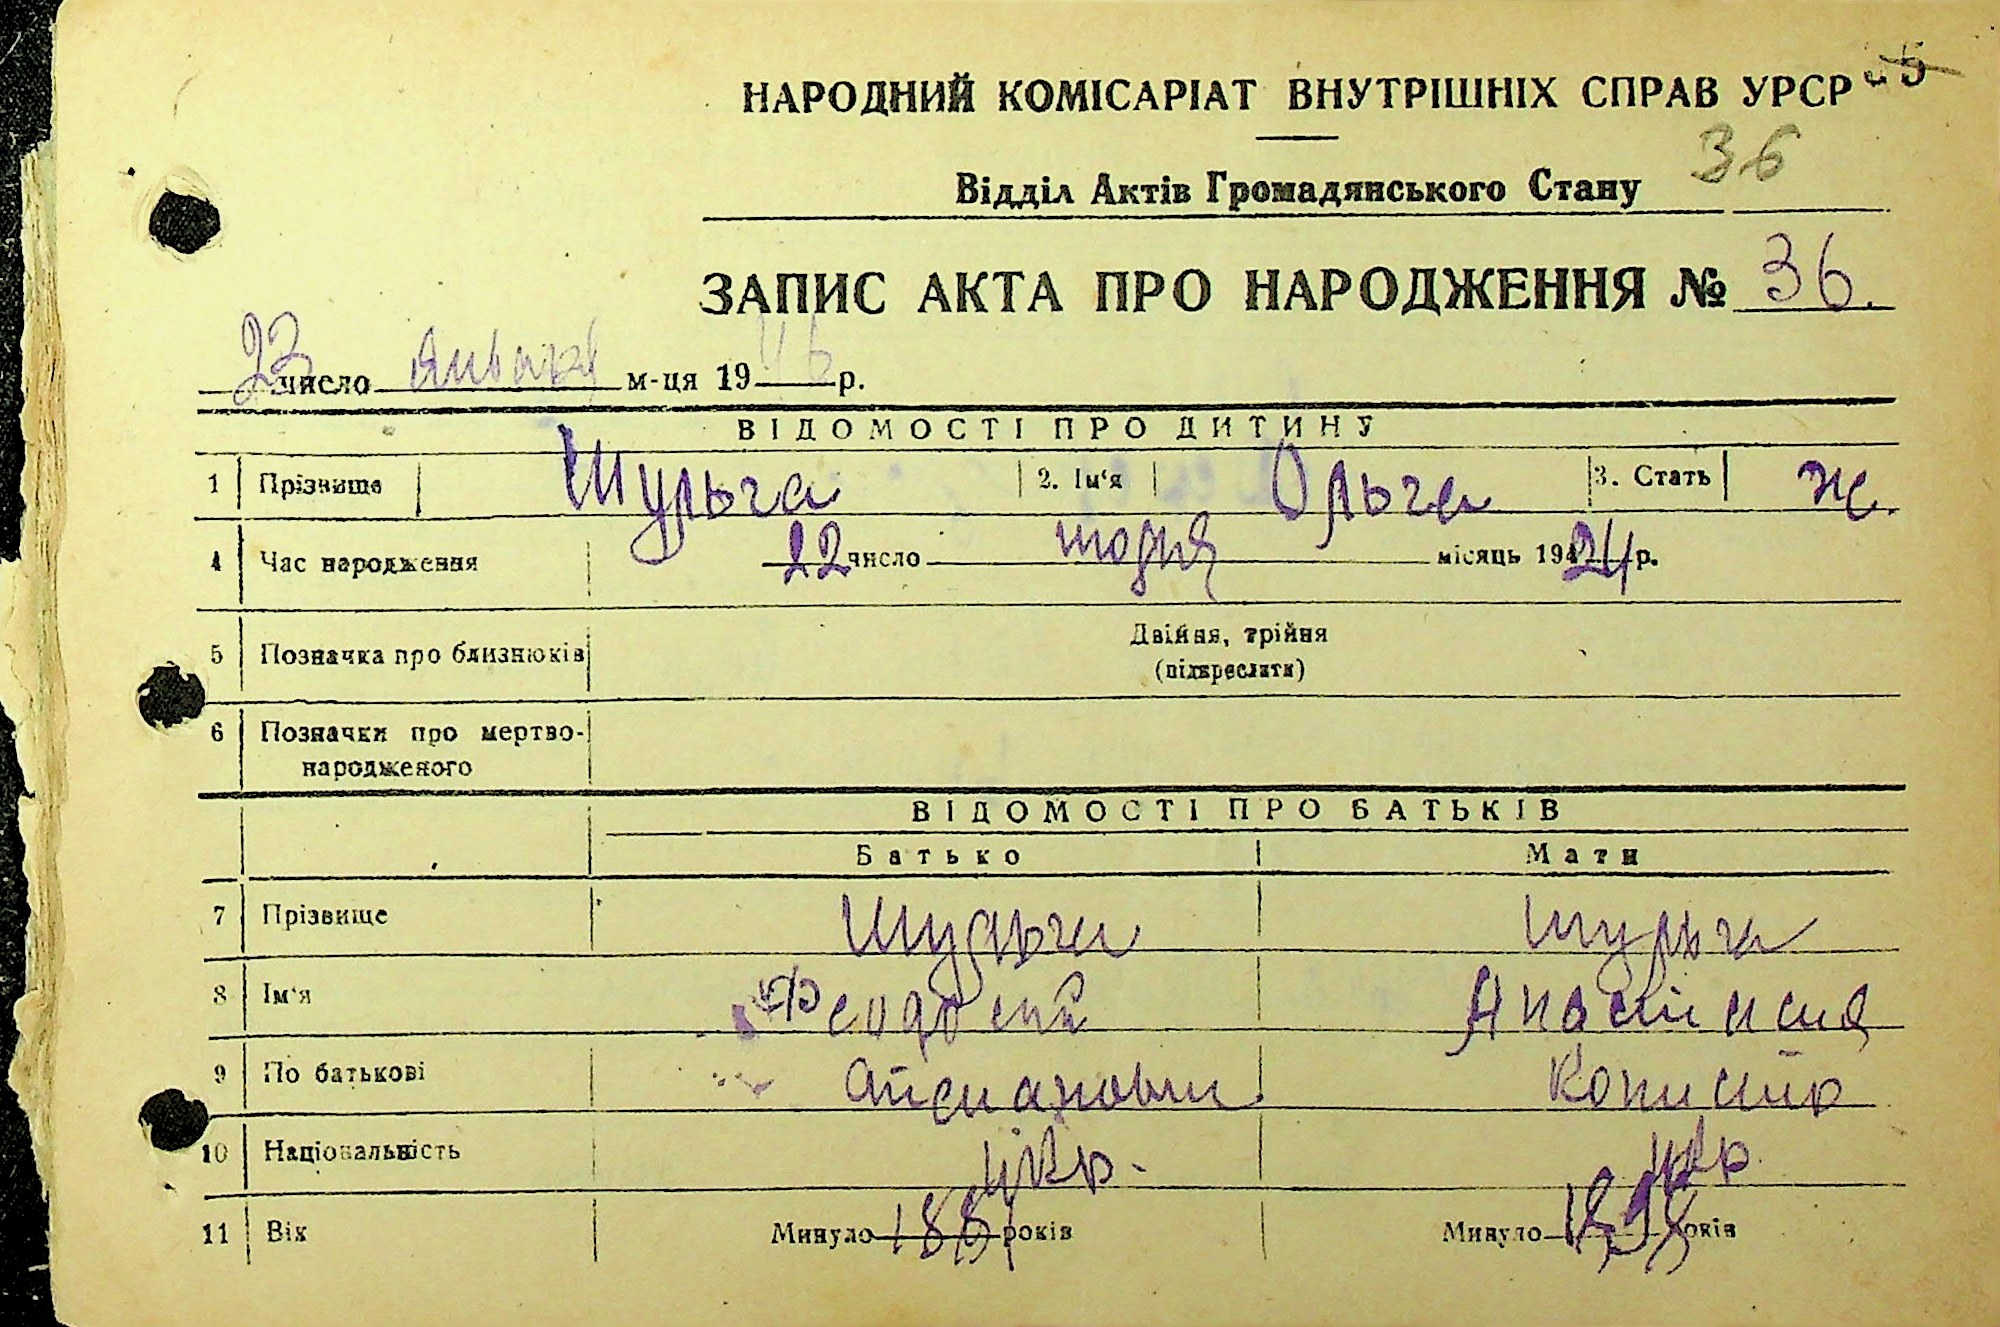 НАРОДНИЙ КОМІСАРІАТ ВНУТРІШНІХ СПРАВ УРСР
36
Відділ Актів Громадянського Стану
ЗАПИС АКТА ПРО НАРОДЖЕННЯ № 36.
23 число января м-ця 1946 р.
ВІДОМОСТІ ПРО ДИТИНУ
1 Прізвище Шульга 2. Ім'я Ольга 3. Стать ж.
4 Час народження 22 число июля місяць 1924 р.
5 Позначка про близнюків Двійня, трійня
(підкреслити)
6 Позначки про мертво-
народженого
ВІДОМОСТІ ПРО БАТЬКІВ
Батько Мати
7 Прізвище Шульга Шульга
8 Ім'я Феодосий Анастасия
9 По батькові
10 Національність укр. укр.
11 Вік Минуло років Минуло років